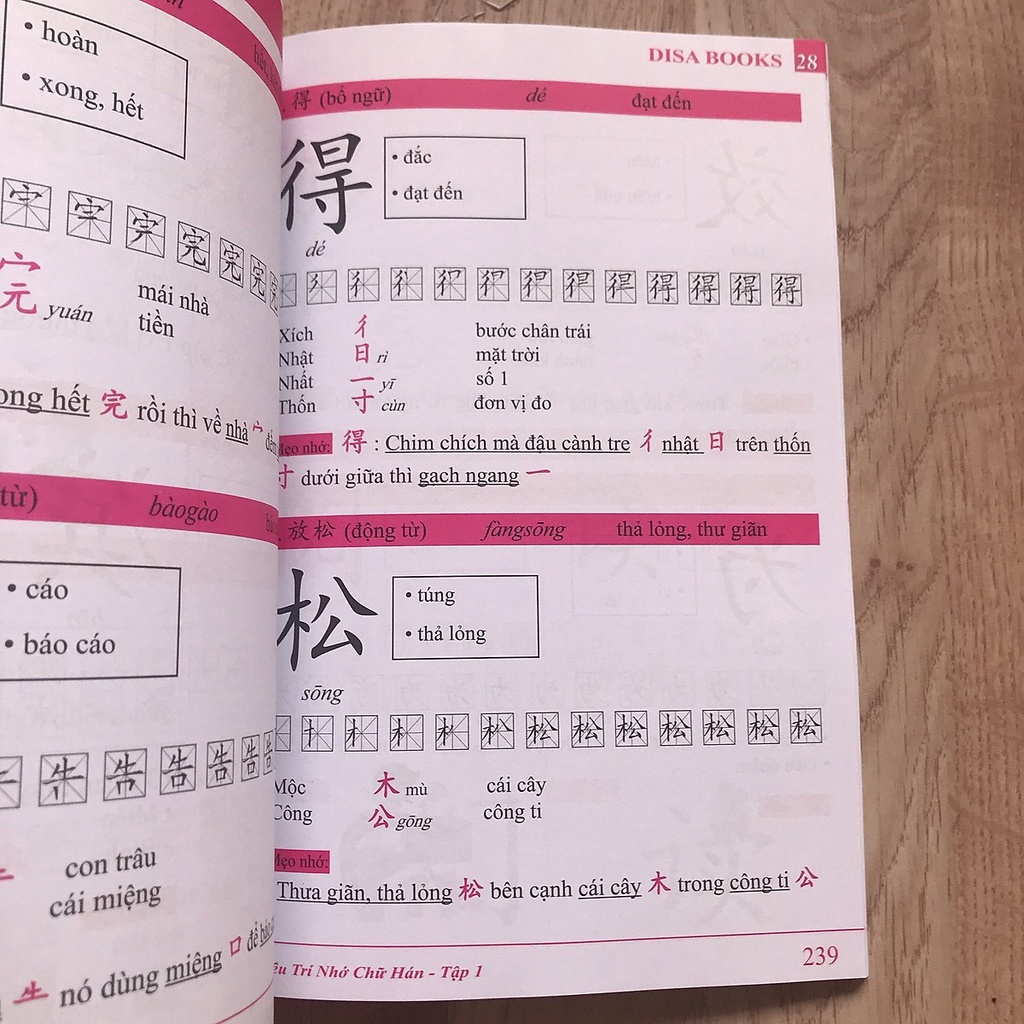 • hoàn
• xong, hết
宀
元 yuán
mái nhà
tiền
xong hết 完 rồi thì về nhà 宀
từ) bàogào
• cáo
• báo cáo
con trâu
cái miệng
nó dùng miệng 口 để
DISA BOOKS 28
得 (bổ ngữ) dé đạt đến
得
• đắc
• đạt đến
dé
Xích 彳 bước chân trái
Nhật 日 rì mặt trời
Nhất 一 yī số 1
Thốn 寸 cùn đơn vị đo
Mẹo nhớ: 得 : Chim chích mà đậu cành tre 彳 nhật 日 trên thốn
寸 dưới giữa thì gạch ngang 一
放松 (động từ) fàngsōng thả lỏng, thư giãn
松
• túng
• thả lỏng
sōng
Mộc 木 mù cái cây
Công 公 gōng công ti
Mẹo nhớ:
Thưa giãn, thả lỏng 松 bên cạnh cái cây 木 trong công ti 公
Trí Nhớ Chữ Hán - Tập 1
239